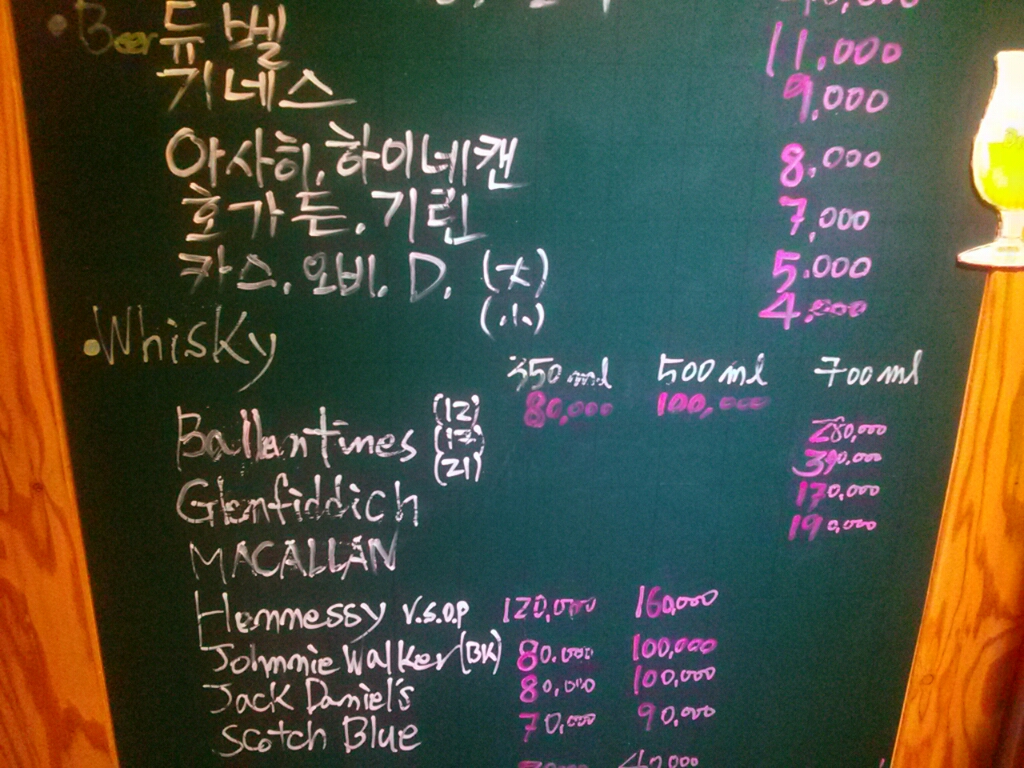 Beer 듀벨 11,000
기네스 9,000
아사히, 하이네캔 8,000
호가든. 기린 7,000
카스. 오비. D. (大) 5.000
(小) 4,000
Whisky
350ml 500ml 700ml
Ballantines (12) 80,000 100,000
(17) 280,000
(21) 390,000
Glenfiddich 170,000
MACALLAN 190,000
Hennessy V.S.O.P 120,000 160,000
Johnnie Walker (BK) 80.000 100,000
Jack Daniel's 80,000 100,000
Scotch Blue 70,000 90,000